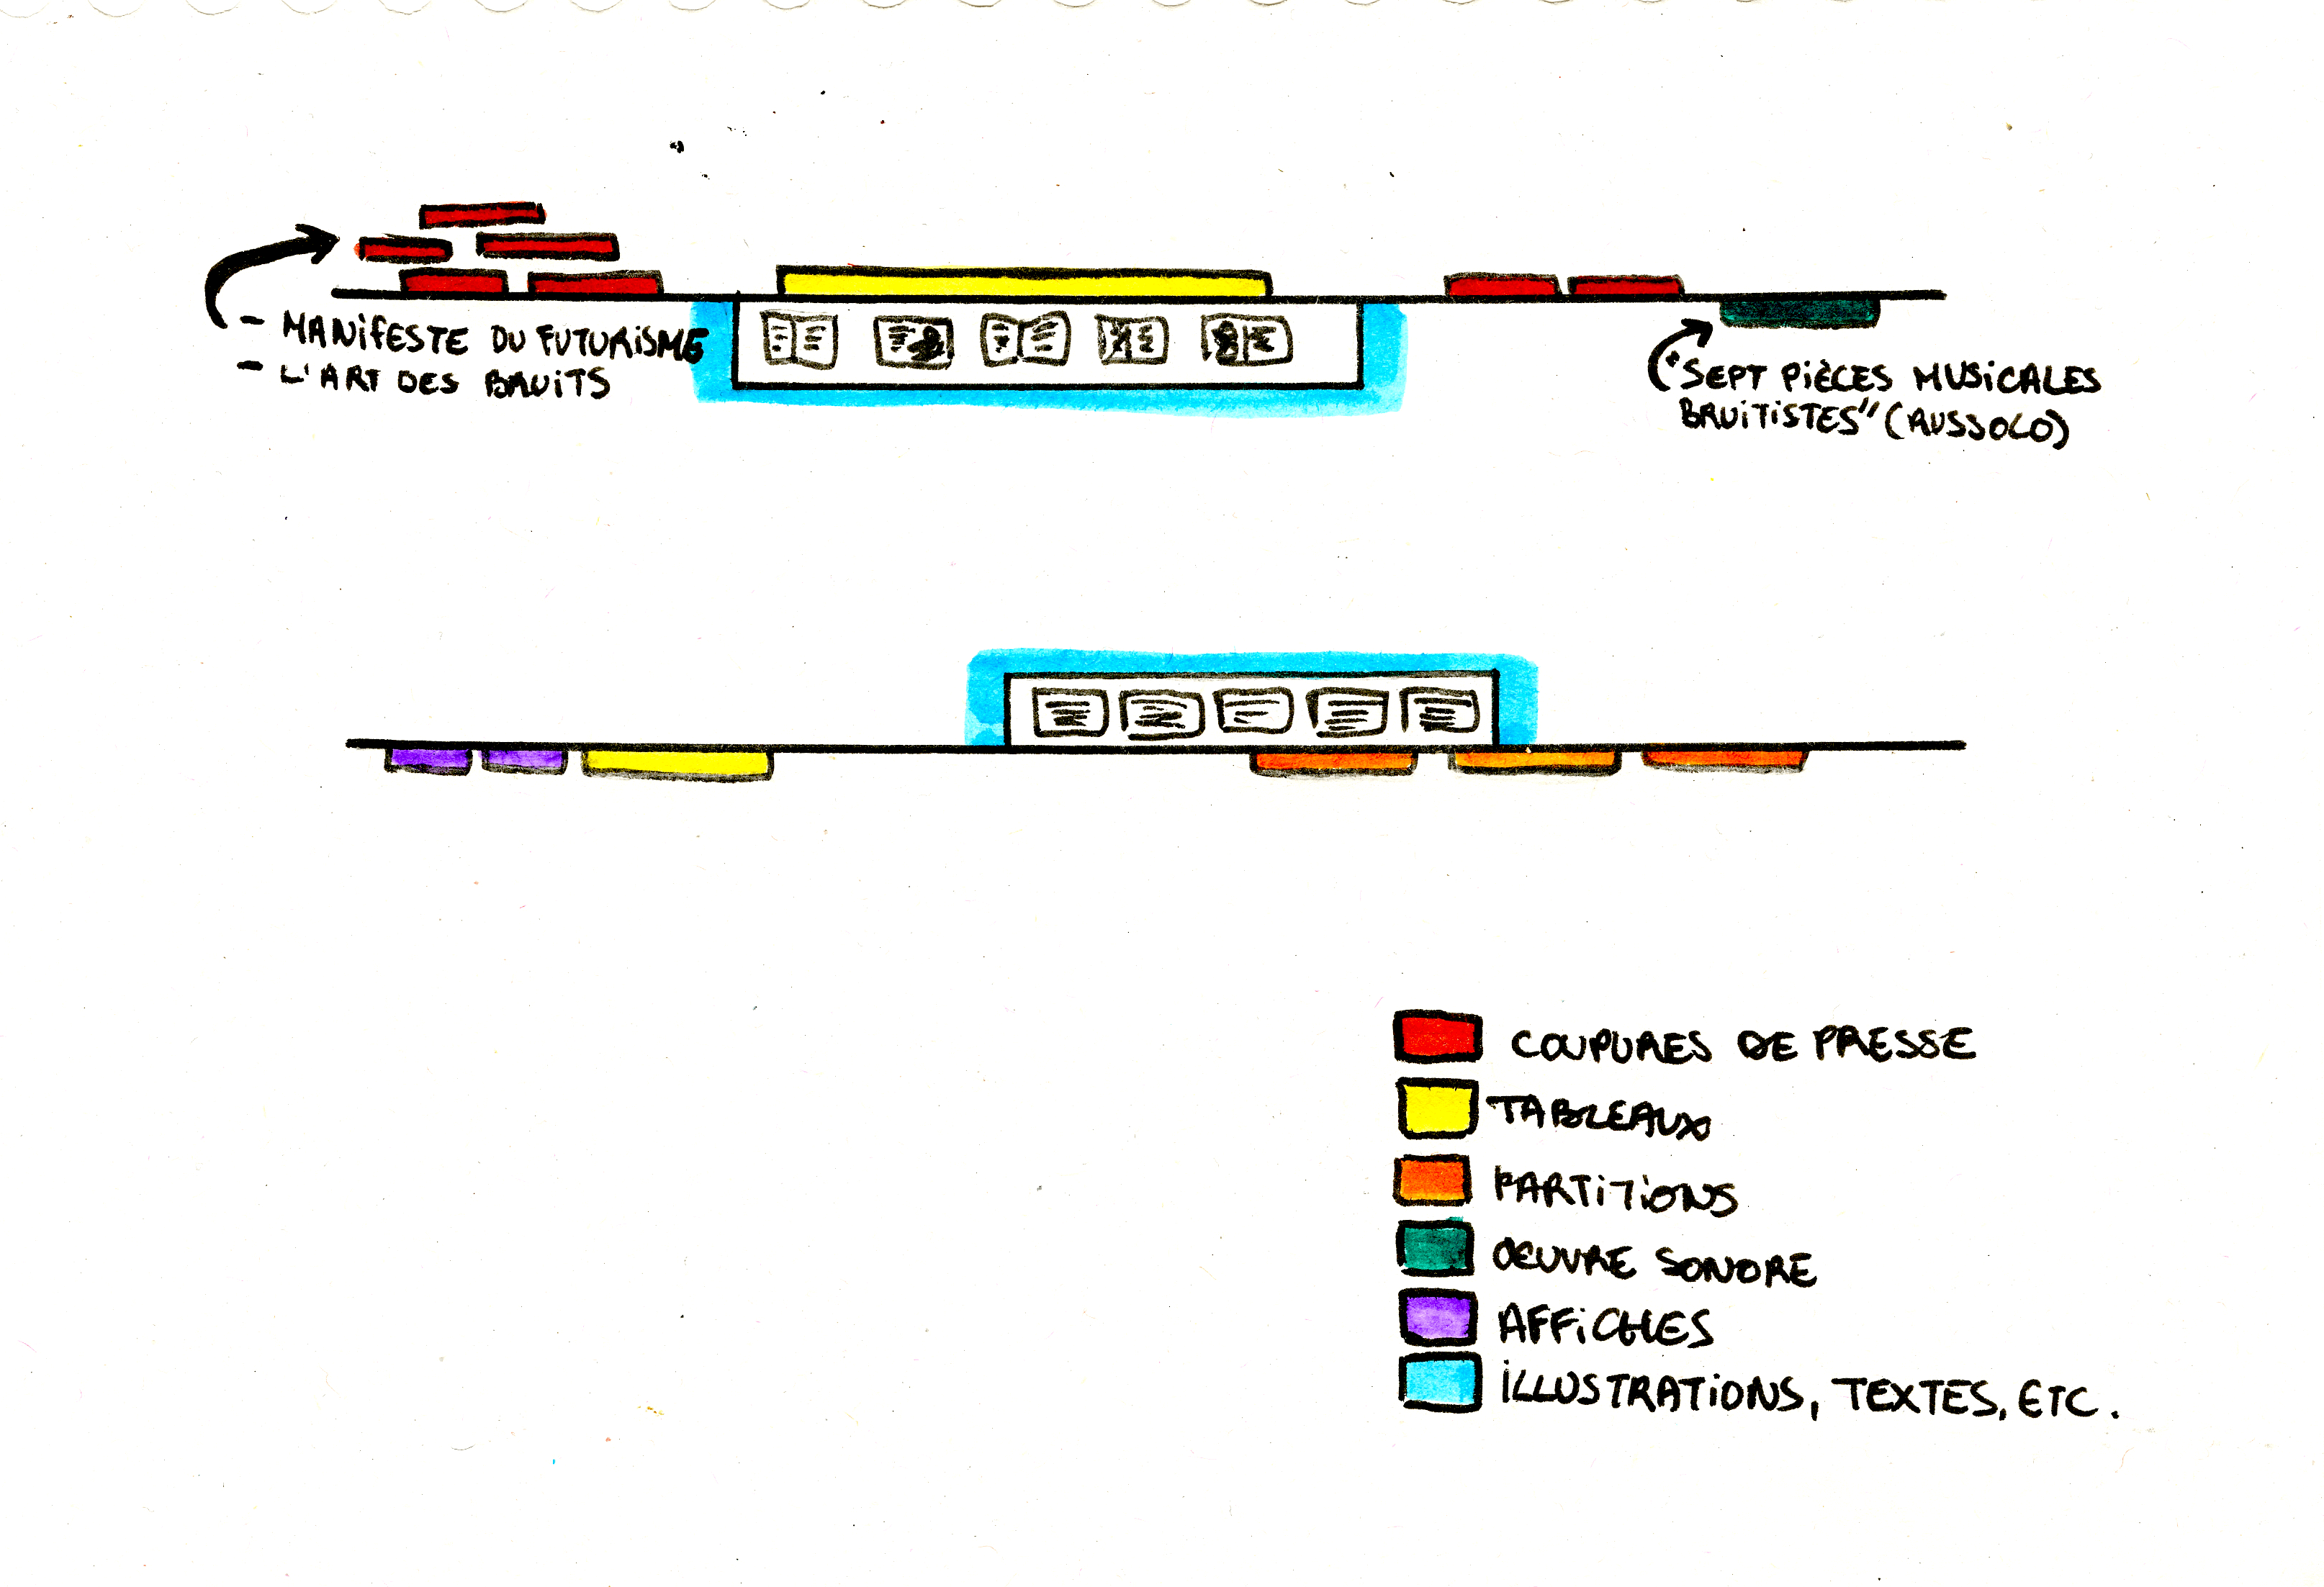 - MANIFESTE DU FUTURISME
- L'ART DES BRUITS
"SEPT PIÈCES MUSICALES
BRUITISTES" (RUSSOLO)
COUPURES DE PRESSE
TABLEAUX
PARTITIONS
OEUVRE SONORE
AFFICHES
ILLUSTRATIONS, TEXTES, ETC.